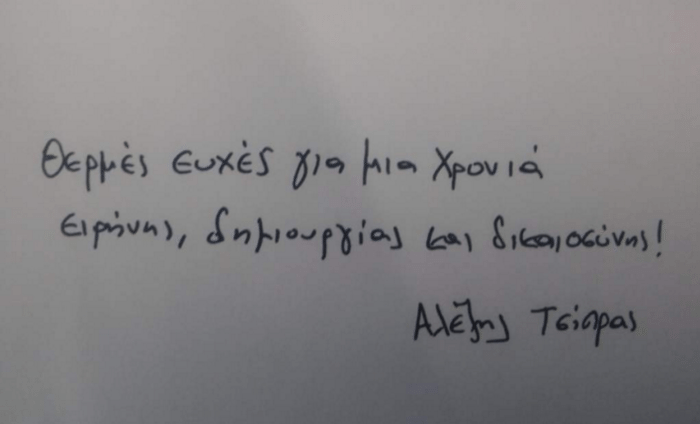 Θερμές ευχές για μια χρονιά
ειρήνης, δημιουργίας και δικαιοσύνης!
Αλέξης Τσίπρας